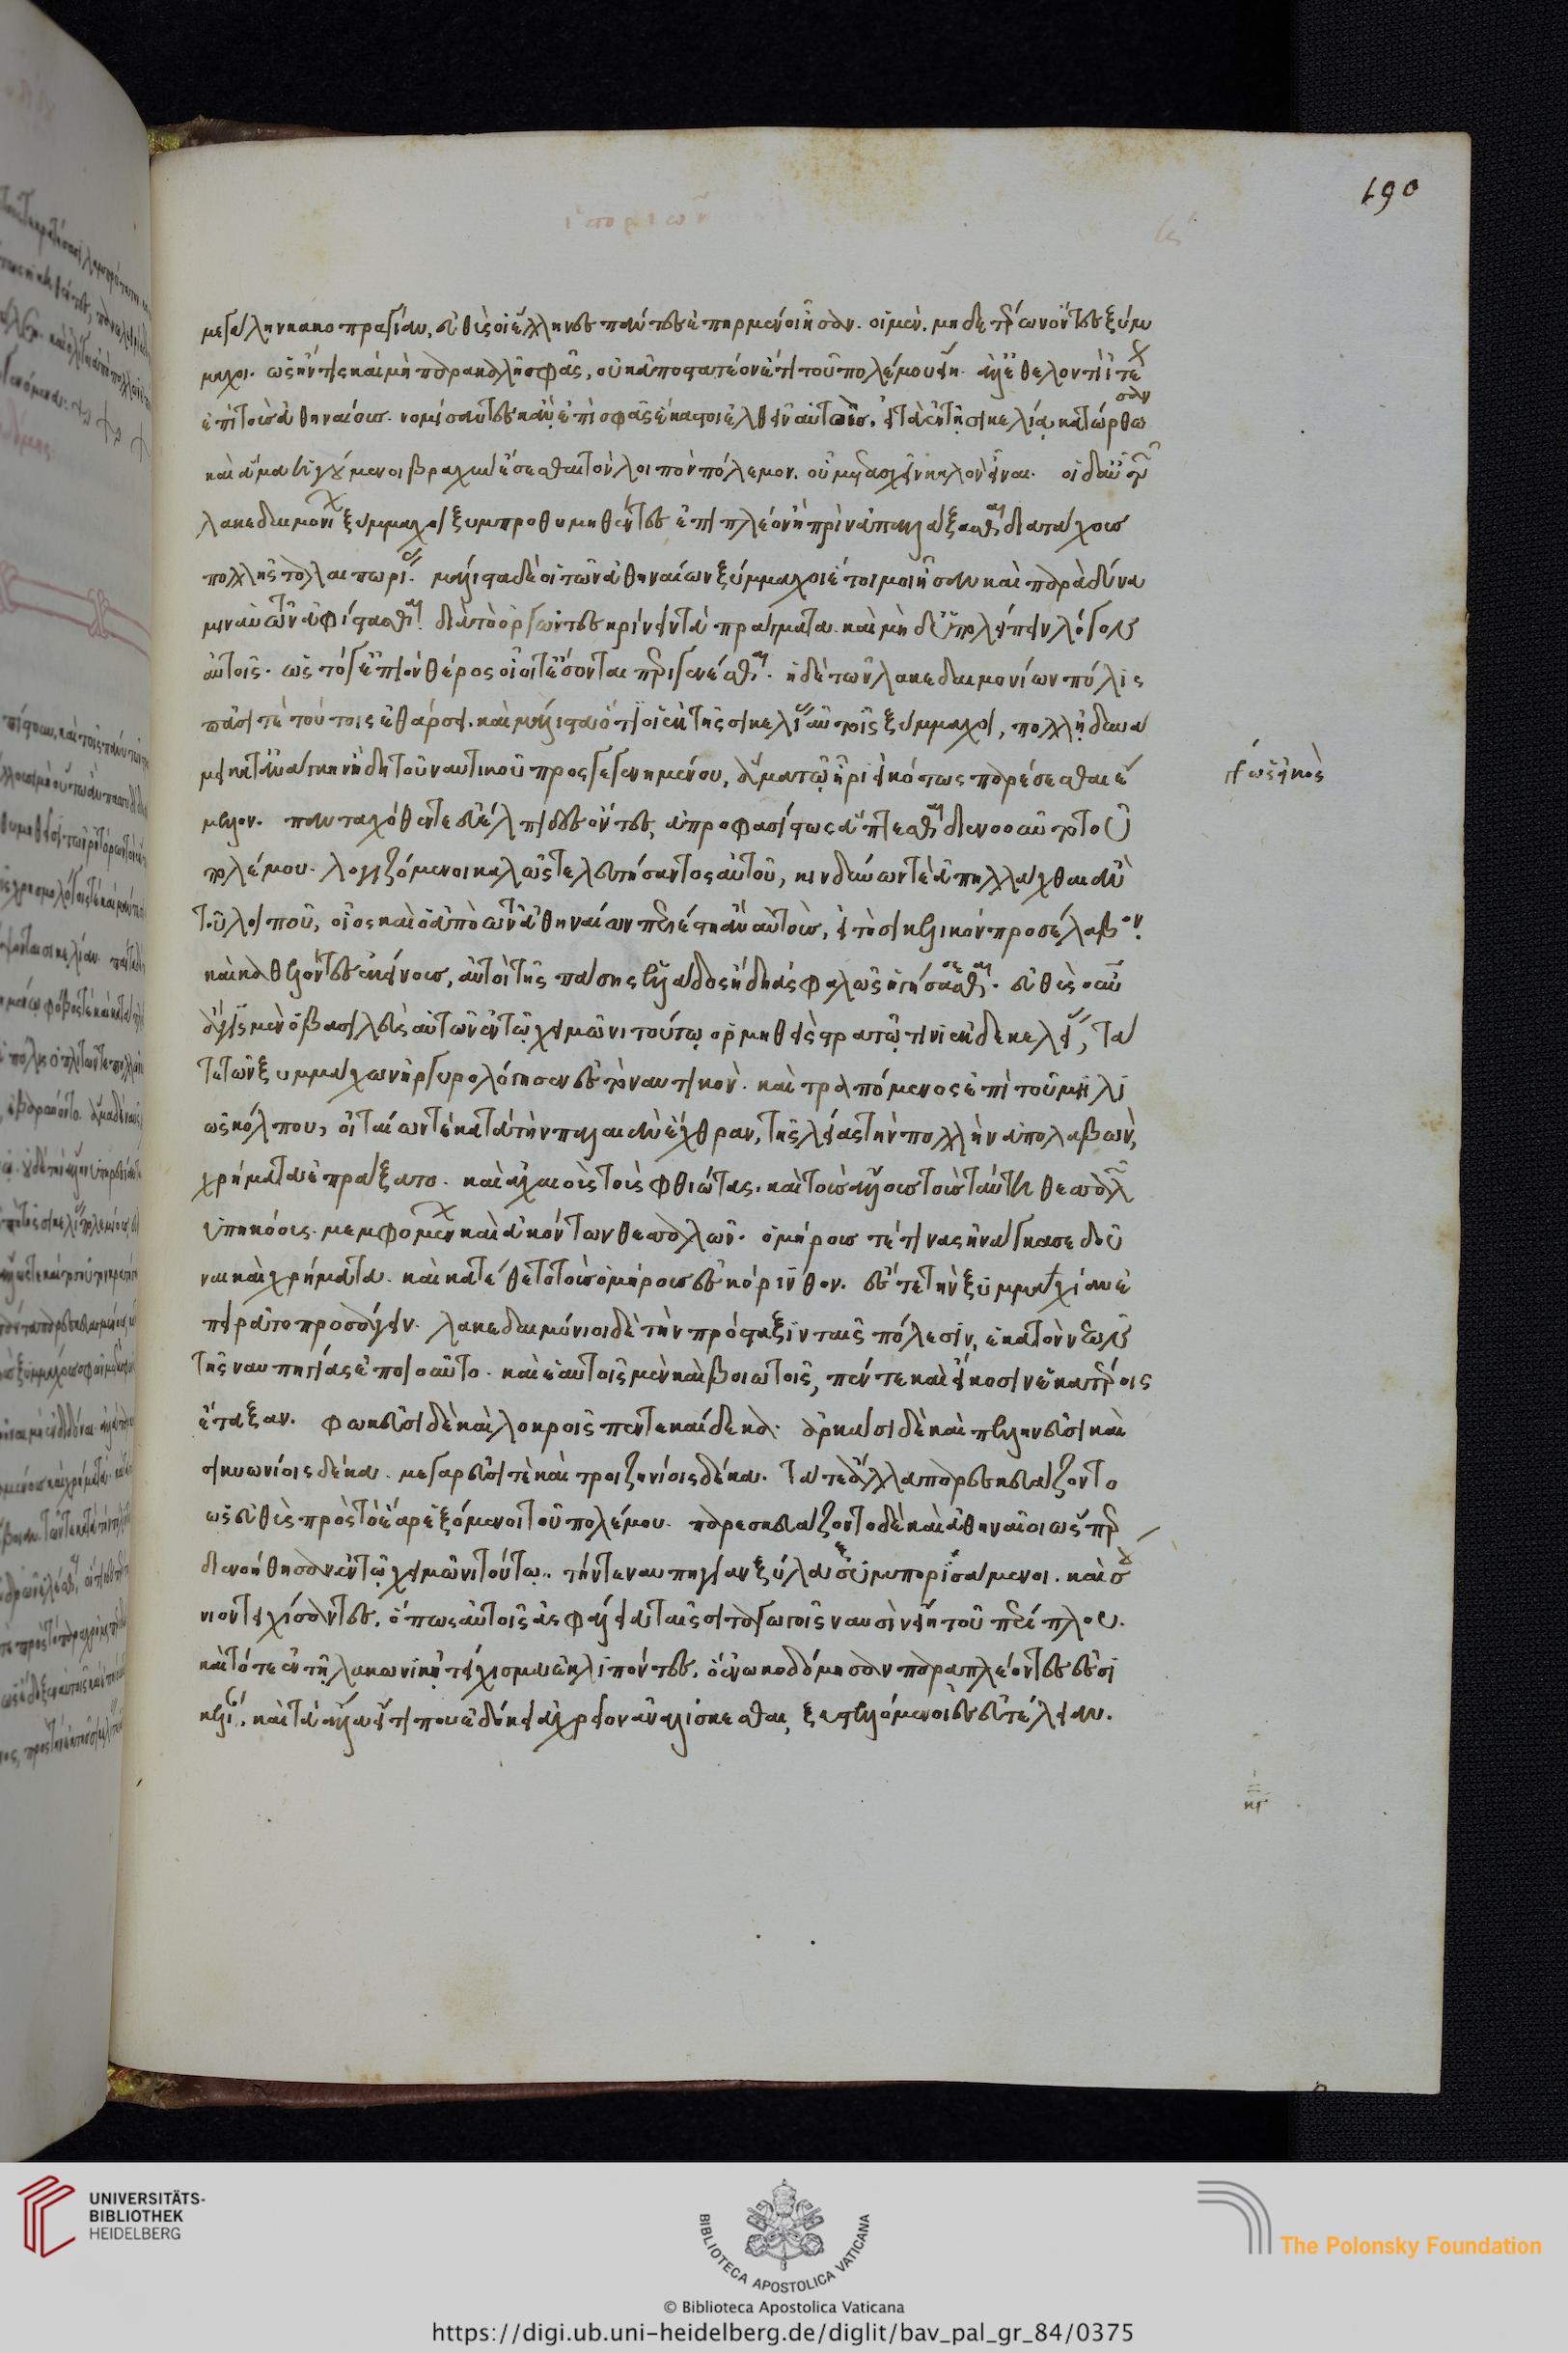 190
ἱστοριῶν
μεγάλην κακοπραγίαν, εὐθὺς οἱ ἕλληνες πάντες ἐπηρμένοι ἦσαν. οἱ μὲν, μηδετέρων ὄντες ξύμ
μαχοι. ὡς ἤν τις καὶ μὴ παρακαλῇ σφᾶς, οὐκ ἀποστατέον ἔτι τοῦ πολέμου εἴη. ἀλλ' ἐθελοντὶ ἰτέον
ἐπὶ τοὺς ἀθηναίους. νομίσαντες κἂν ἐπὶ σφᾶς ἕκαστοι ἐλθεῖν αὐτοὺς, εἰ τὰ ἐν τῇ σικελίᾳ κατώρθωσαν
καὶ ἅμα βραχὺν ἔσεσθαι τὸν λοιπὸν πόλεμον. οὗ μετασχεῖν καλὸν εἶναι. οἱ δ' αὖ τῶν
λακεδαιμονίων ξύμμαχοι ξυμπροθυμηθέντες ἐπὶ πλέον ἢ πρὶν ἀπαλλάξεσθαι διὰ τάχους
πολλῆς ταλαιπωρίας. μάλιστα δὲ οἱ τῶν ἀθηναίων ξύμμαχοι ἑτοῖμοι ἦσαν καὶ παρὰ δύνα
μιν αὐτῶν ἀφίστασθαι. διὰ τὸ ὀργῶντες κρίνειν τὰ πράγματα. καὶ μὴ δ' ὑπολείπειν λόγον
αὐτοῖς. ὡς τό γ' ἐπιὸν θέρος οἷοί τε ἔσονται περιγενέσθαι. ἡ δὲ τῶν λακεδαιμονίων πόλις
πᾶσί τε τούτοις ἐθάρσει. καὶ μάλιστα ὅτι οἱ ἐκ τῆς σικελίας αὐτοῖς ξύμμαχοι, πολλῇ δυνά
μει κατ' ἀνάγκην ἤδη τοῦ ναυτικοῦ προσγεγενημένου, ἅμα τῷ ἦρι εἰκότως παρέσεσθαι ἔ
μελλον. πανταχόθεν τε εὐέλπιδες ὄντες, ἀπροφασίστως ἅπτεσθαι διενοοῦντο τοῦ
πολέμου. λογιζόμενοι καλῶς τελευτήσαντος αὐτοῦ, κινδύνων τε ἀπηλλάχθαι ἂν
τοῦ λοιποῦ, οἷος καὶ ὁ ἀπὸ τῶν ἀθηναίων περιέστη ἂν αὐτοὺς, εἰ τὸ σικελικὸν προσέλαβον.
καὶ καθελόντες ἐκείνους, αὐτοὶ τῆς πάσης ἑλλάδος ἤδη ἀσφαλῶς ἡγήσεσθαι. εὐθὺς οὖν
ἆγις μὲν ὁ βασιλεὺς αὐτῶν ἐν τῷ χειμῶνι τούτῳ ὁρμηθεὶς στρατῷ τινι ἐκ δεκελείας, τά
τε τῶν ξυμμάχων ἠργυρολόγησεν ἐς τὸ ναυτικὸν. καὶ τραπόμενος ἐπὶ τοῦ μηλι
ῶς κόλπου, οἰταίων τε κατὰ τὴν παλαιὰν ἔχθραν, τῆς λείας τὴν πολλὴν ἀπολαβὼν,
χρήματα ἐπράξατο. καὶ ἀχαιοὺς τοὺς φθιώτας. καὶ τοὺς ἄλλους τοὺς ταύτῃ θεσσαλῶν
ὑπηκόους. μεμφομένων καὶ ἀκόντων θεσσαλῶν. ὁμήρους τέ τινας ἠνάγκασε δοῦ
ναι καὶ χρήματα. καὶ κατέθετο τοὺς ὁμήρους ἐς κόρινθον. ἔς τε τὴν ξυμμαχίαν ἐ
πειρᾶτο προσάγειν. λακεδαιμόνιοι δὲ τὴν πρόσταξιν ταῖς πόλεσιν, ἑκατὸν νεῶν
τῆς ναυπηγίας ἐποιοῦντο. καὶ ἑαυτοῖς μὲν καὶ βοιωτοῖς, πέντε καὶ εἴκοσιν ἑκατέροις
ἔταξαν. φωκεῦσι δὲ καὶ λοκροῖς πεντεκαίδεκα. ἀρκάσι δὲ καὶ πελληνεῦσι καὶ
σικυωνίοις δέκα. μεγαρεῦσί τε καὶ τροιζηνίοις δέκα. τά τε ἄλλα παρεσκευάζοντο
ὡς εὐθὺς πρὸς τὸ ἔαρ ἑξόμενοι τοῦ πολέμου. παρεσκευάζοντο δὲ καὶ ἀθηναῖοι ὥσπερ
διενοήθησαν ἐν τῷ χειμῶνι τούτῳ. τήν τε ναυπηγίαν ξύλα ξυμπορισάμενοι. καὶ σού
νιον τειχίσαντες, ὅπως αὐτοῖς ἀσφάλεια ταῖς σιταγωγοῖς ναυσὶν εἴη τοῦ περίπλου.
καὶ τό τε ἐν τῇ λακωνικῇ τείχισμα ἐκλιπόντες, ὃ ἐνῳκοδόμησαν παραπλέοντες ἐς σι
κελίαν, καὶ τὰ ἄλλα εἴ τί που ἐδόκει ἀχρεῖον ἀναλίσκεσθαι, ξυστελλόμενοι ἐς εὐτέλειαν.
UNIVERSITÄTS-
BIBLIOTHEK
HEIDELBERG
BIBLIOTECA APOSTOLICA VATICANA
The Polonsky Foundation
© Biblioteca Apostolica Vaticana
https://digi.ub.uni-heidelberg.de/diglit/bav_pal_gr_84/0375